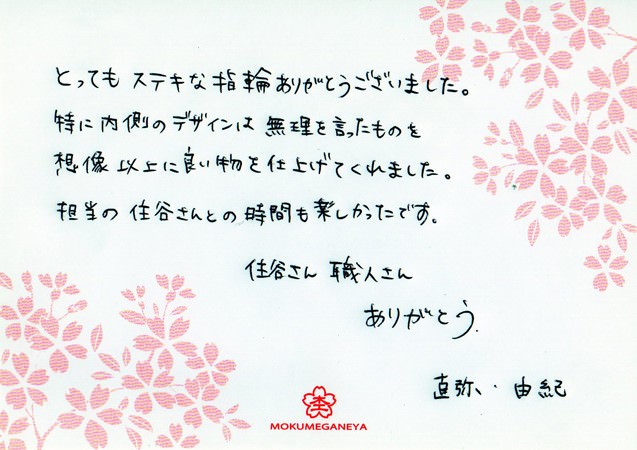 とっても ステキな指輪ありがとうございました。
特に内側のデザインは 無理を言ったものを
想像以上に良い物を仕上げてくれました。
担当の 住谷さんとの時間も楽しかったです。
住谷さん 職人さん
ありがとう.
直弥、・由紀
MOKUMEGANEYA